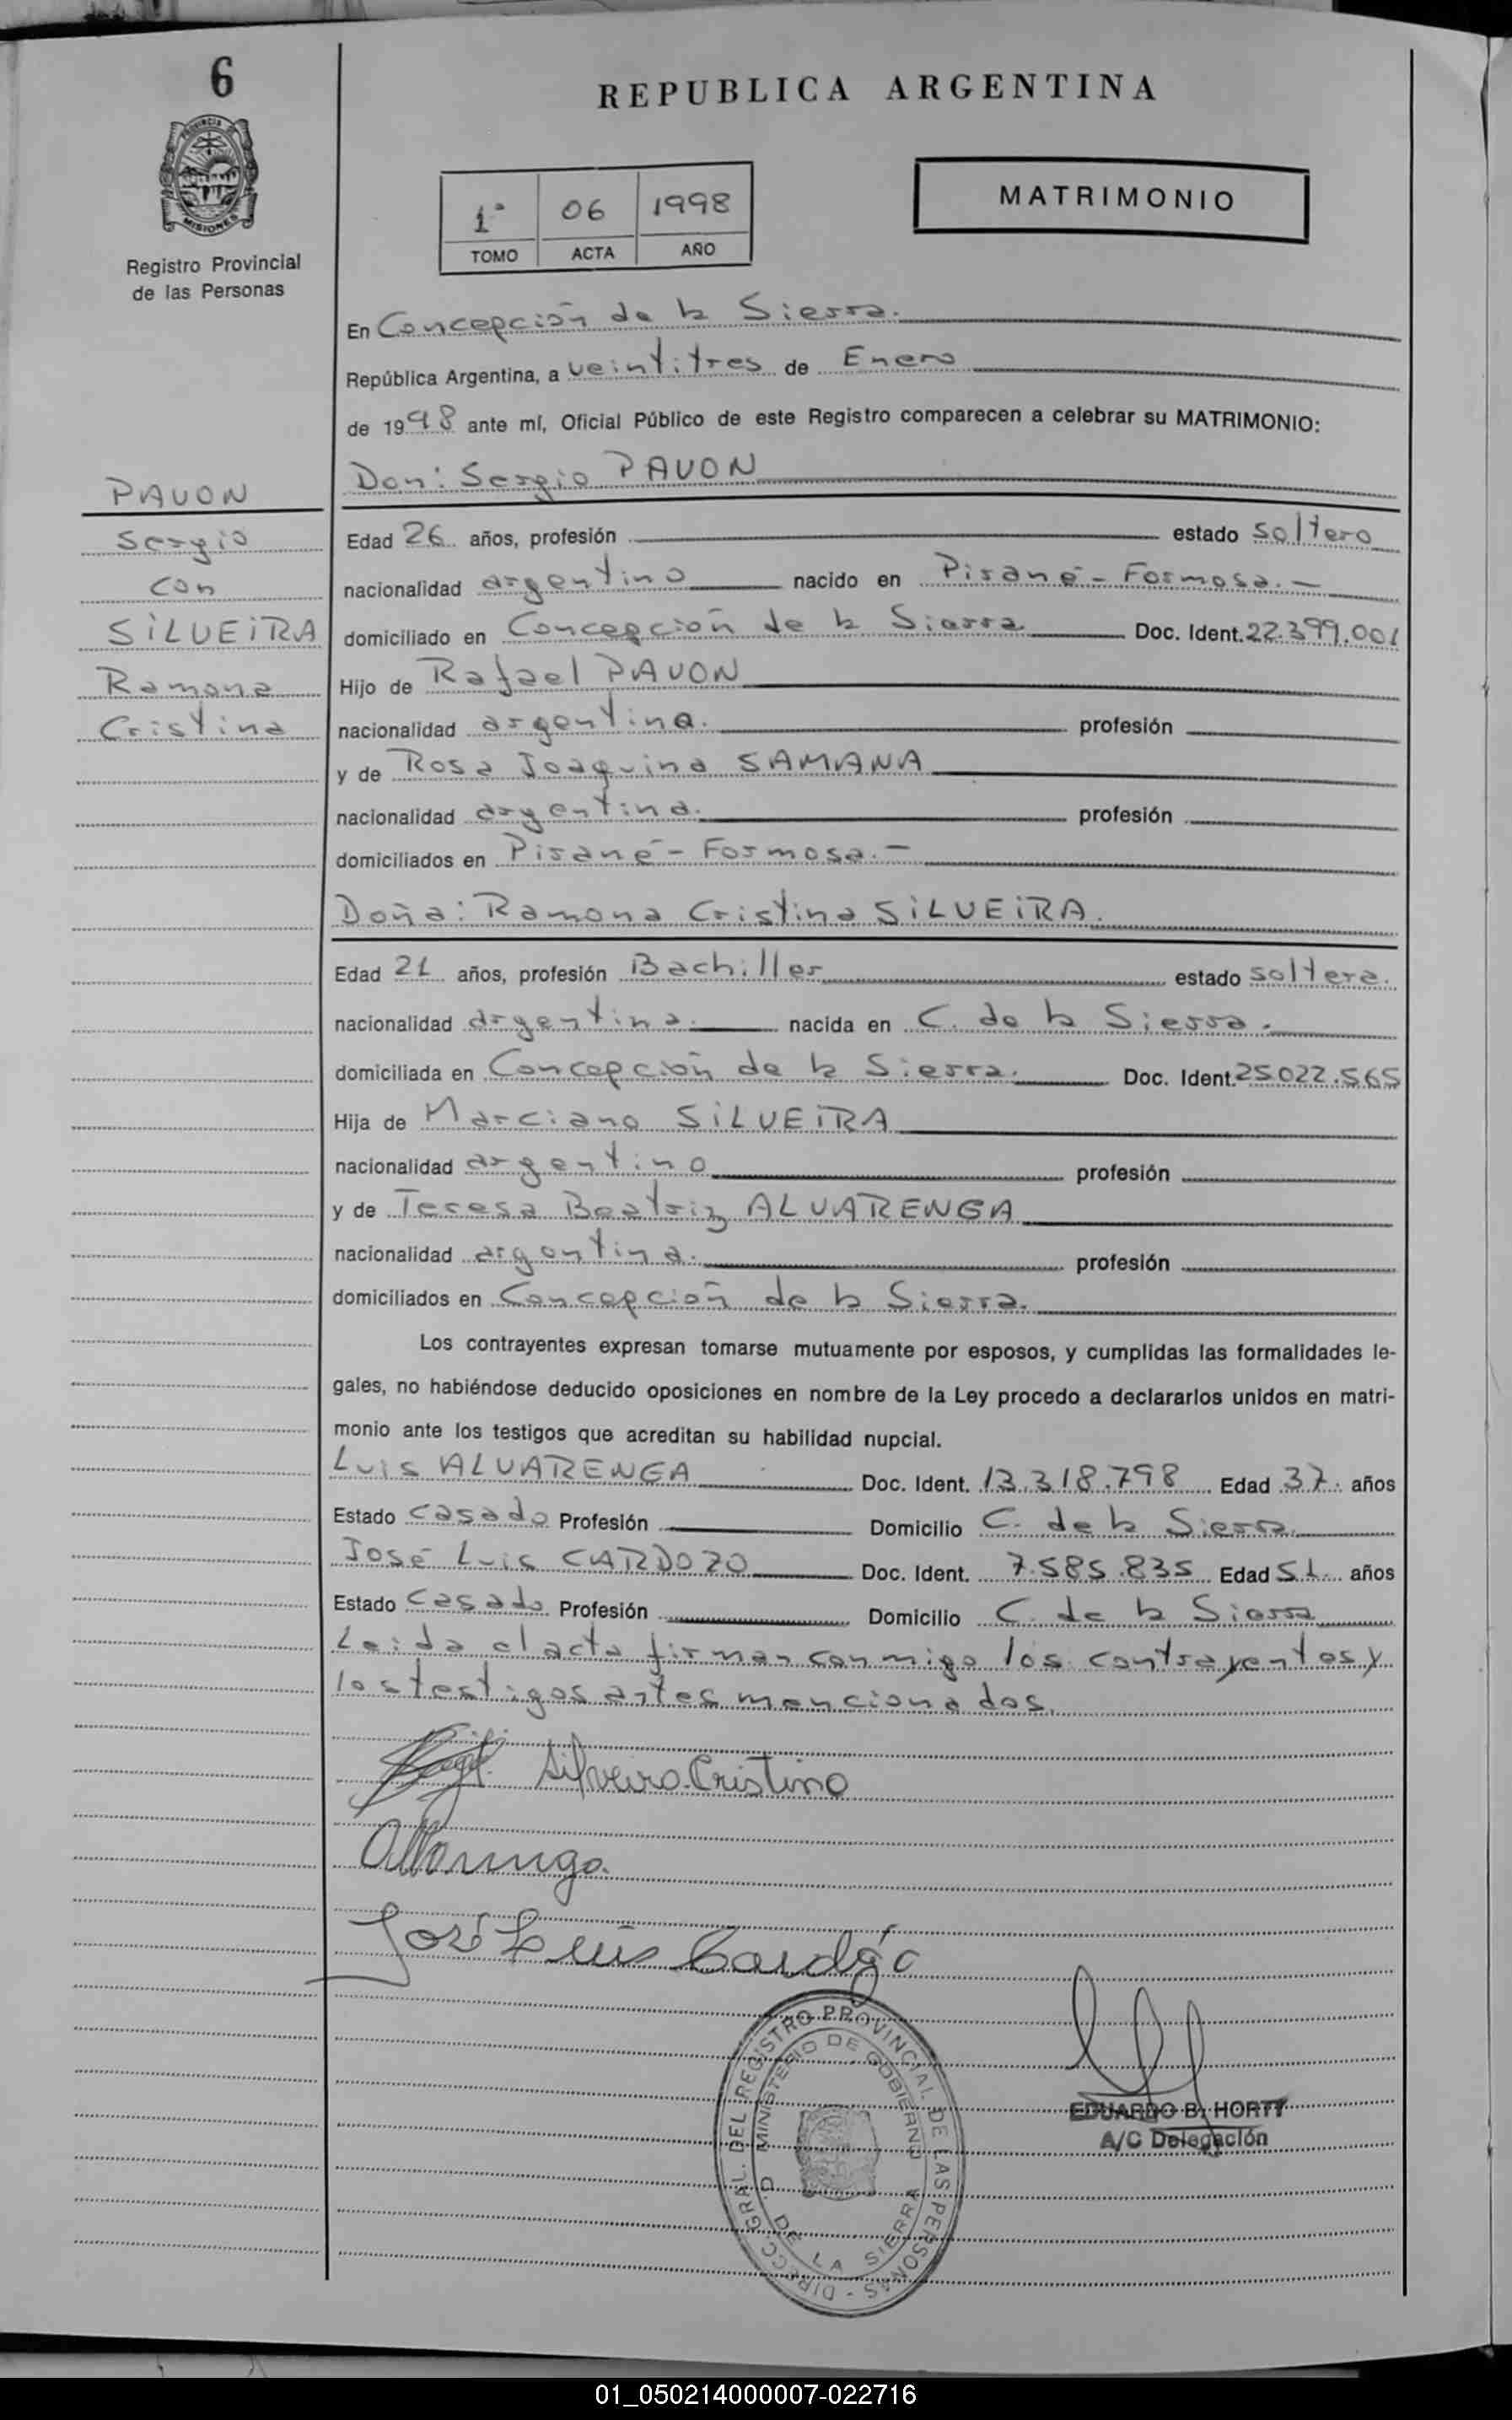 6
REPUBLICA ARGENTINA
PROVINCIA DE
MISIONES
Registro Provincial
de las Personas
1º 06 1998
TOMO ACTA AÑO
MATRIMONIO
En Concepción de la Sierra.
República Argentina, a veintitres de Enero
de 1998 ante mí, Oficial Público de este Registro comparecen a celebrar su MATRIMONIO:
Don: Sergio PAVON
PAVON
Sergio
con
SILVEIRA
Ramona
Cristina
Edad 26 años, profesión estado soltero
nacionalidad argentino nacido en Pirané - Formosa.-
domiciliado en Concepción de la Sierra Doc. Ident. 22.399.001
Hijo de Rafael PAVON
nacionalidad argentina. profesión
y de Rosa Joaquina SAMANA
nacionalidad argentina. profesión
domiciliados en Pirané - Formosa.-
Doña: Ramona Cristina SILVEIRA.
Edad 21 años, profesión Bachiller estado soltera.
nacionalidad argentina. nacida en C. de la Sierra.
domiciliada en Concepción de la Sierra. Doc. Ident. 25022.565
Hija de Marciano SILVEIRA
nacionalidad argentino profesión
y de Teresa Beatriz ALVARENGA
nacionalidad argentina. profesión
domiciliados en Concepción de la Sierra.
Los contrayentes expresan tomarse mutuamente por esposos, y cumplidas las formalidades le-
gales, no habiéndose deducido oposiciones en nombre de la Ley procedo a declararlos unidos en matri-
monio ante los testigos que acreditan su habilidad nupcial.
Luis ALVARENGA Doc. Ident. 13.318.798 Edad 37. años
Estado casado Profesión Domicilio C. de la Sierra
José Luis CARDOZO Doc. Ident. 7.585.835 Edad 51. años
Estado casado Profesión Domicilio C. de la Sierra
Leída el acta firman conmigo los contrayentes y
los testigos antes mencionados.
Silveira Cristina
José Luis Cardozo
DIRECC. GRAL. DEL REGISTRO PROVINCIAL DE LAS PERSONAS -
MINISTERIO DE GOBIERNO
DE LA SIERRA
EDUARDO B. HORTT
A/C Delegación
01_050214000007-022716